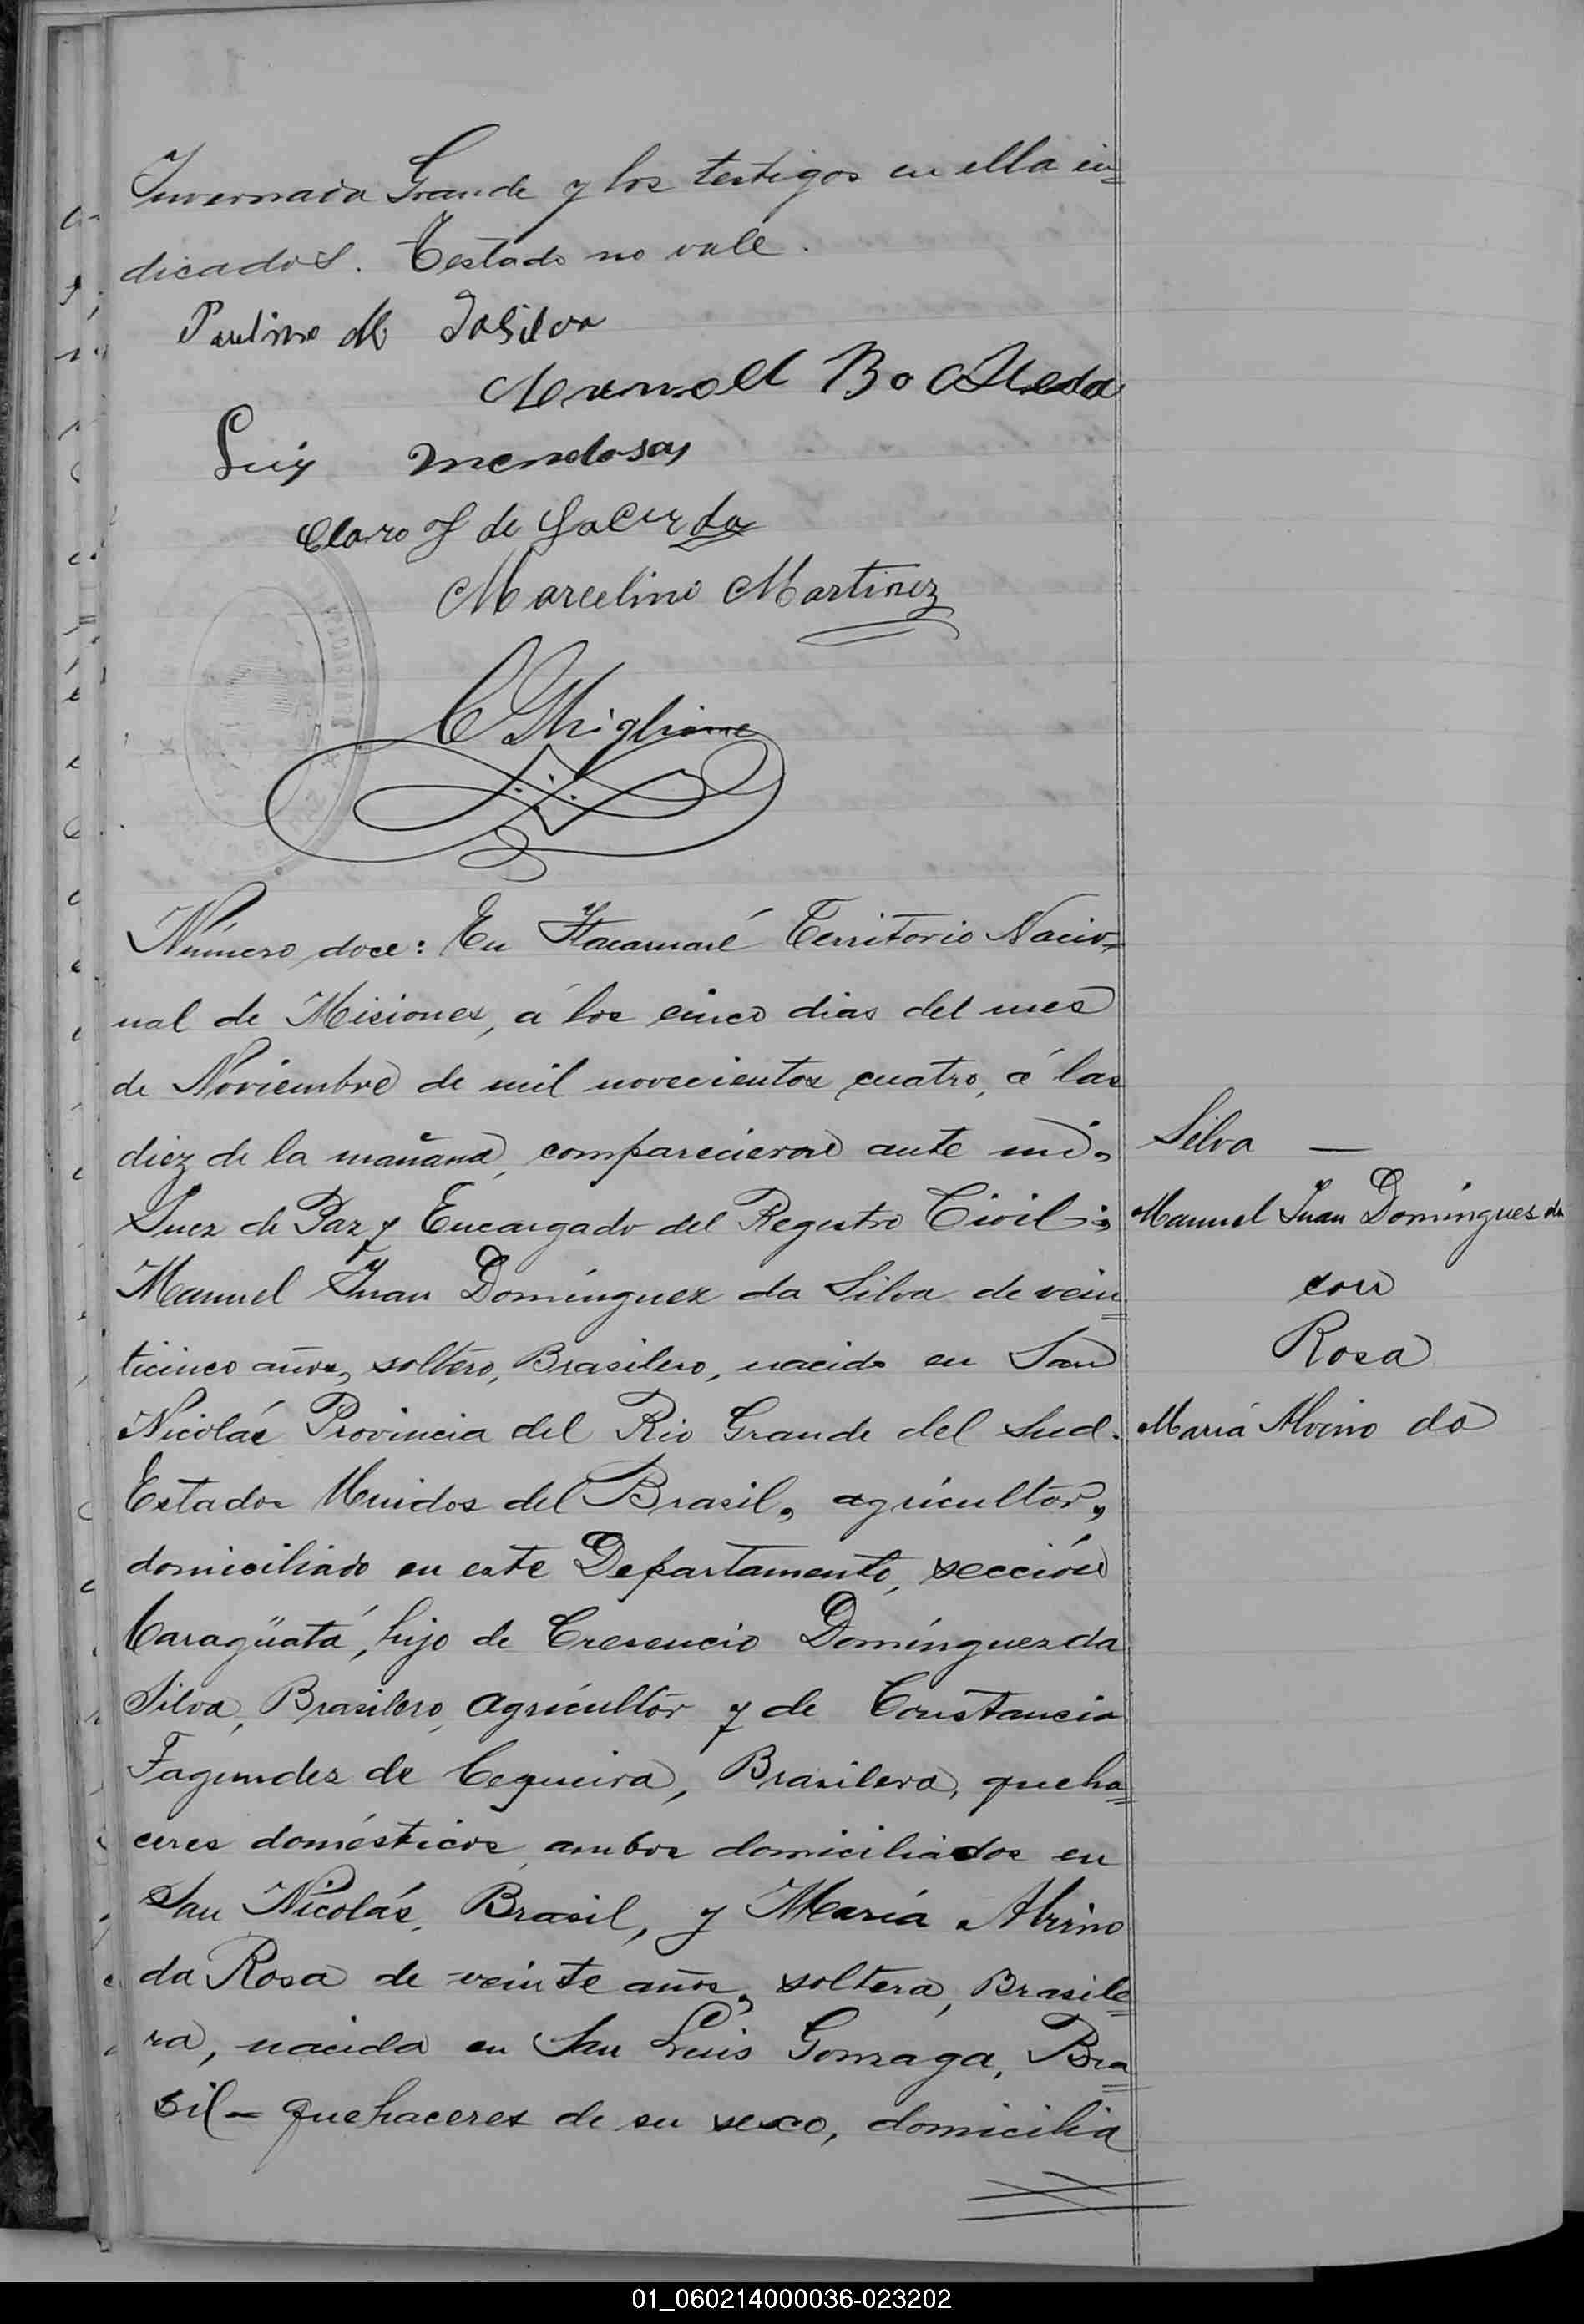 Invernada Grande y los testigos en ella in=
dicados. Testado no vale.
Paulino M DaSilva
Bo
Luis Mendosa
Claro F de LaCerda
Marcelino Martinez
C Ghiglione
Número doce: En Itacaruaré Territorio Nacio=
nal de Misiones, á los cinco dias del mes
de Noviembre de mil novecientos cuatro, á las
diez de la mañana, comparecieron ante mi,
Juez de Paz y Encargado del Registro Civil:
Manuel Juan Domínguez da Silva de vein=
ticinco años, soltero, Brasilero, nacido en San
Nicolás Provincia del Rio Grande del Sud.
Estados Unidos del Brasil, agricultor,
domiciliado en este Departamento, sección
Caragüatá, hijo de Cresencio Domínguez da
Silva, Brasilero, agricultor y de Constancia
Fagundez de Cequeira, Brasilera, queha=
ceres domésticos ambos domiciliados en
San Nicolás, Brasil, y María Alvino
da Rosa de veinte años, soltera, Brasile=
ra, nacida en San Luis Gonzaga, Bra=
sil = quehaceres de su sexo, domicilia
Silva —
Manuel Juan Domíngues da
con
Rosa
María Alvino da
01_060214000036-023202